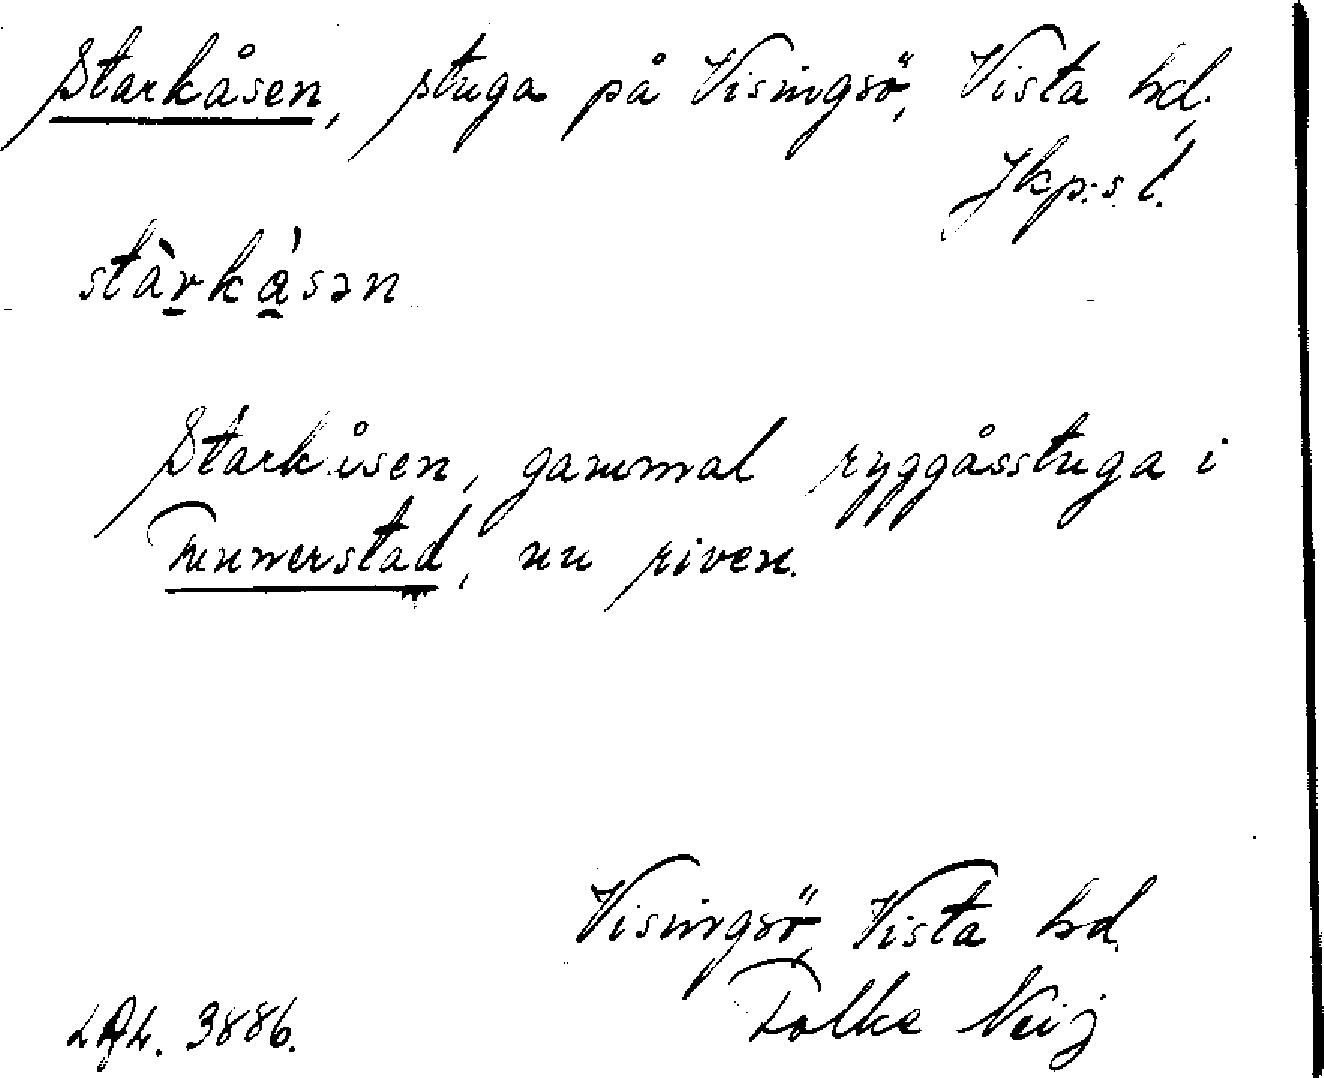 Starkåsen, stuga på Visingsö, Vista hd,
Jkp:s l.
stàrkåsən
Starkåsen, gammal ryggåsstuga i
Tunnerstad, nu riven.
Visingsö, Vista hd.
Folke Neij
LAL. 3886.